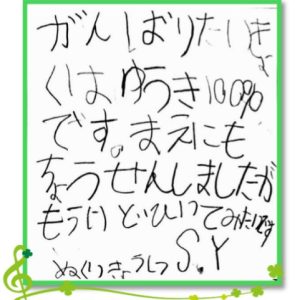 がんばりたいきょ
くは ゆうき100%
です。まえにも
ちょうせんしましたが
もういちどひいてみたいです
ぬくいきょうしつ S.Y